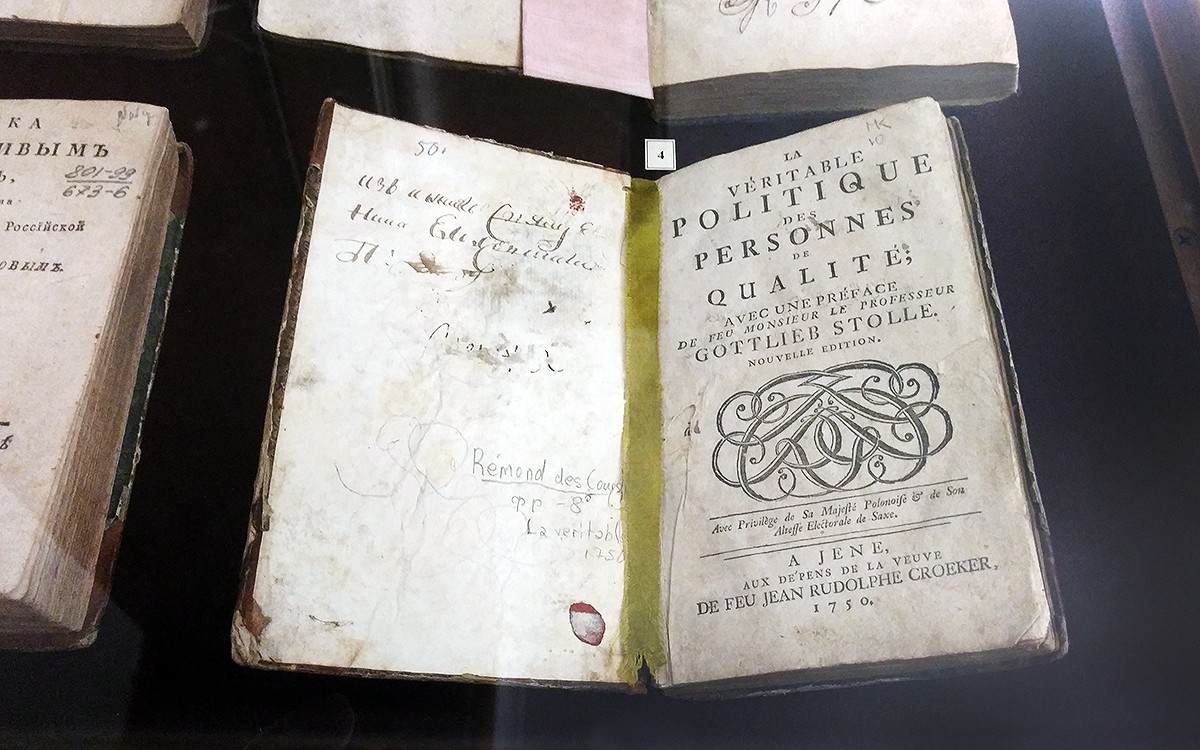 КА
ИВЫМЪ
801-99
673-6
Россїйской
ОВЫМЪ.
4
50.
изъ
Нина
П:
Rémond des Cours
фр - 8°
La veritable
1750
НК
10
LA
VÉRITABLE
POLITIQUE
DES
PERSONNES
DE
QUALITÉ;
AVEC UNE PRÉFACE
DE FEU MONSIEUR LE PROFESSEUR
GOTTLIEB STOLLE.
NOUVELLE EDITION.
Avec Privilège de Sa Majesté Polonoise & de Son
Altesse Electorale de Saxe.
A JENE,
AUX DE'PENS DE LA VEUVE
DE FEU JEAN RUDOLPHE CROEKER,
1750.